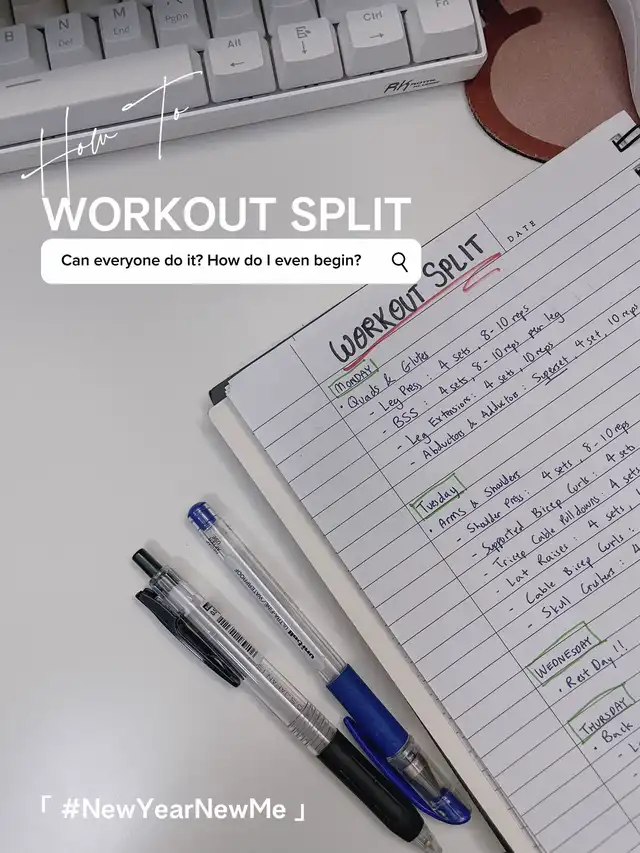 B
N
Del
M
End
K
PgDn
Alt
←
↓
Ctrl
→
Fn
RK
How To
WORKOUT SPLIT
Can everyone do it? How do I even begin?
DATE
WORKOUT SPLIT
MONDAY
• Quads & Glutes
- Leg Press : 4 sets, 8-10 reps
- BSS : 4 sets, 8-10 reps per leg
- Leg Extensions : 4 sets, 10 reps
- Abductors & Adductors : Superset 4 set, 10 reps
Tuesday
• Arms & Shoulders
- Shoulder Press : 4 sets, 8-10 reps
- Supported Bicep Curls : 4 sets
- Tricep Cable Pulldowns 4 sets
- Lat Raises : 4 sets
- Cable Bicep Curls :
- Skull Crushers : 4
WEDNESDAY
• Rest Day!!
THURSDAY
• Back
- L
「 #NewYearNewMe 」